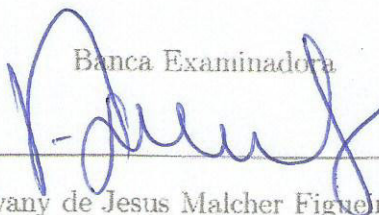 Banca Examinadora
vany de Jesus Malcher Figuei